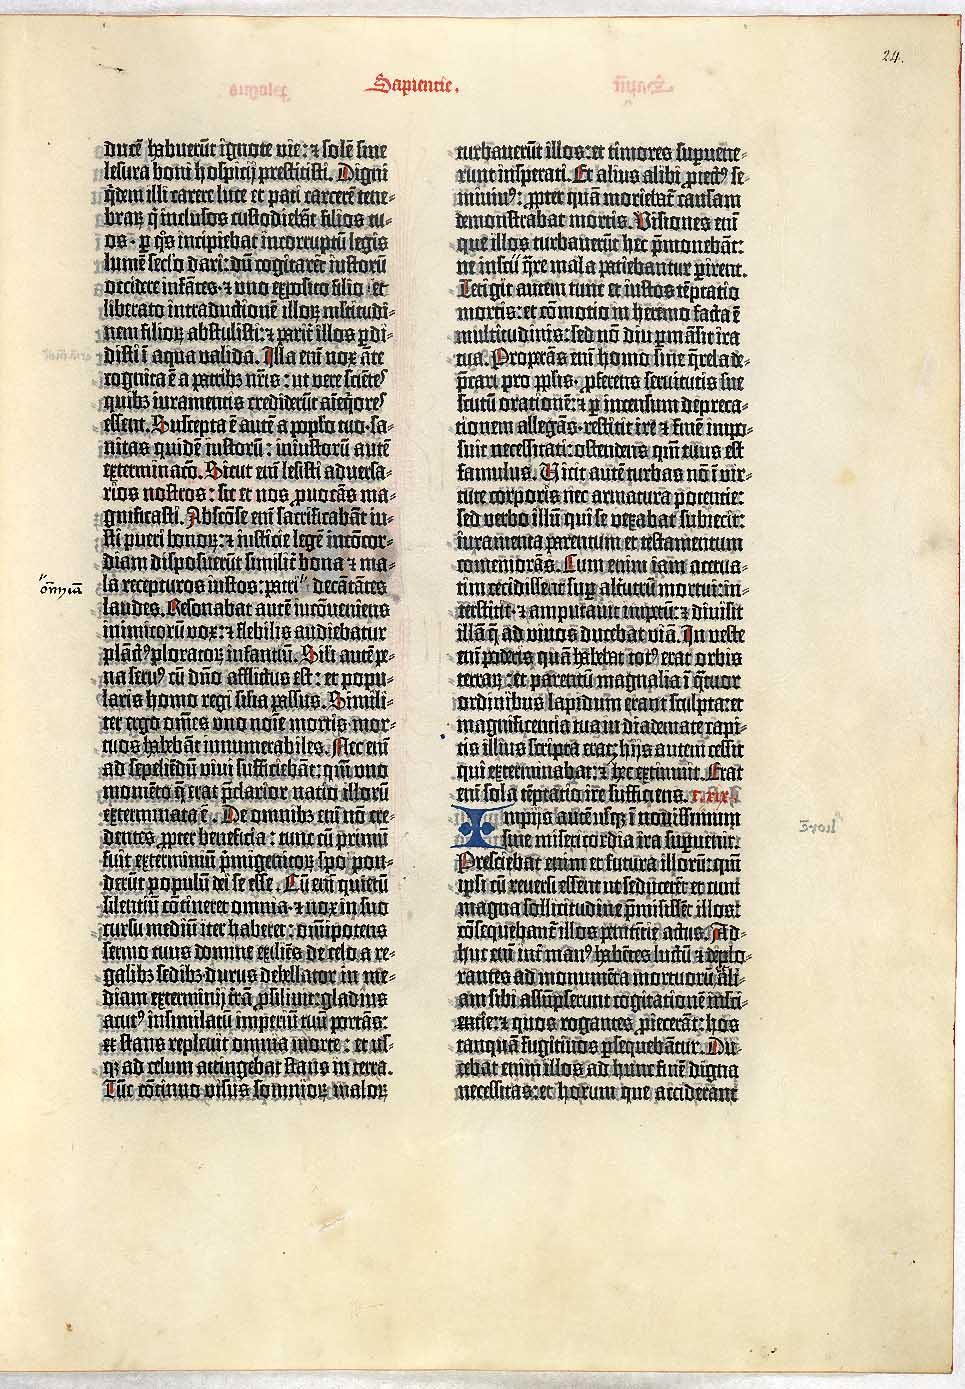 24.
Sapientie.
ducē habuerūt ignote vie: ⁊ solē sine
lesura boni hospicij prestitisti. Digni
q̄dem illi carere luce et pati carcerē tene-
braꝝ q̄ inclusos custodiebāt filios tu-
os · ꝑ q̄s incipiebat incorruptū legis
lumē sec̄lo dari: dū cogitarēt iustorū
occidere infātes · ⁊ uno exposito filio · et
liberato in traductionē illoꝝ multitudi-
nem filioꝝ abstulisti: ⁊ parit̄ illos ꝑdi-
disti ī aqua valida. Illa eni nox āte
cognita ē a patribꝫ nr̄is: ut vere sciētes
quibꝫ iuramentis crediderūt aīeq̄ores
essent. Suscepta ē autē a poplo tuo · sa-
nitas quidē iustorū : iniustorū autē
exterminacō. Sicut eni lesisti adversa-
rios nostros: sic et nos ꝓuocās ma-
gnificasti. Abscōse eni sacrificabāt iu-
sti pueri bonoꝝ: ⁊ iusticie legē in cōcor-
diam disposuerūt similit̄ bona ⁊ ma-
la recepturos iustos: patri" decātātes
"ōniū
laudes. Resonabat autē incōueniens
inimicorū vox: ⁊ flebilis audiebatur
plāctꝰ ploratoꝝ infantiū. Sili autē pe-
na seruꝰ cū dn̄o afflictus est: et popu-
laris homo regi silia passus. Simili-
ter ergo om̄es uno noīe mortis mor-
tuos habebāt innumerabiles. Nec eni
ad sepeliēdū vivi sufficiebāt: qm̄ uno
momēto q̄ erat p̄clarior natio illorū
exterminata ē. De omnibꝫ eni nō cre-
dentes ꝓpter beneficia: tunc cū primū
fuit exterminiū p̄mogenitoꝝ spopon-
derūt populū dei se esse. Cū eni quietū
silentiū cōtineret omnia · ⁊ nox in suo
cursu mediū iter haberet: om̄ipotens
sermo tuus domine exiliēs de celo a re-
galibꝫ sedibꝫ · durus debellator in me-
diam exterminij trā ꝓsiliuit: gladius
acutꝰ insimulatū imperiū tuū portās:
et stans repleuit omnia morte: et us-
qꝫ ad celum attingebat stans in terra.
Tūc cōtinuo visus somnioꝝ maloꝝ
turbauerūt illos: et timores supuene-
runt insperati. Et alius alibi ꝓiectꝰ se-
miuiuꝰ: ꝓpter quā moriebat̄ causam
demonstrabat mortis. Visiones eni
que illos turbauerūt hec p̄monebāt:
ne inscij q̄re mala patiebantur ꝑirent.
Tetigit autem tunc et iustos tēptatio
mortis: et cōmotio in heremo facta ē
multitudinis: sed nō diu ꝑmāsit ira
tua. Properās eni homo sine q̄rela de-
p̄cari pro pplis · ꝓferens seruitutis sue
scutū orationē: ⁊ ꝑ incensum depreca-
tionem allegās · restitit ire ⁊ finē impo-
suit necessitati: ostendens qm̄ tuus est
famulus. Vicit autē turbas nō ī vir-
tute corporis nec armatura potentie:
sed verbo illū qui se vexabat subiecit:
iuramenta parentum et testamentum
cōmemorās. Cum enim iam acerua-
tim cecidissent suꝑ alt̄utrū mortui: in-
terstitit · ⁊ amputauit impetū: ⁊ diuisit
illā q̄ ad viuos ducebat viā. In veste
eni poderis quā habebat totꝰ erat orbis
terraꝝ: et parentū magnalia ī q̄tuor
ordinibus lapidum erant sculpta: et
magnificentia tua in diademate capi-
tis illius scripta erat; hijs autem cessit
qui exterminabat: ⁊ hec extimuit. Erat
eni sola tēptatio ire sufficiens. c. xix.
Impijs autē usqꝫ ī nouissimum
sine misericordia ira supuenit.
Presciebat enim et futura illorū: qm̄
ipsi cū reuersi essent ut seducerēt et cum
magna sollicitudine p̄misissēt illos:
cōsequebant̄ illos penitētie actus. Ad-
huc eni int̄ manꝰ habētes luctū ⁊ deplo-
rantes ad monumēta mortuorū ali-
am sibi assūpserunt cogitationē insci-
entie: ⁊ quos rogantes ꝓiecerāt: hos
tanquā fugitiuos ꝑsequebātur. Du-
cebat enim illos ad hunc finē digna
necessitas: et horum que acciderant